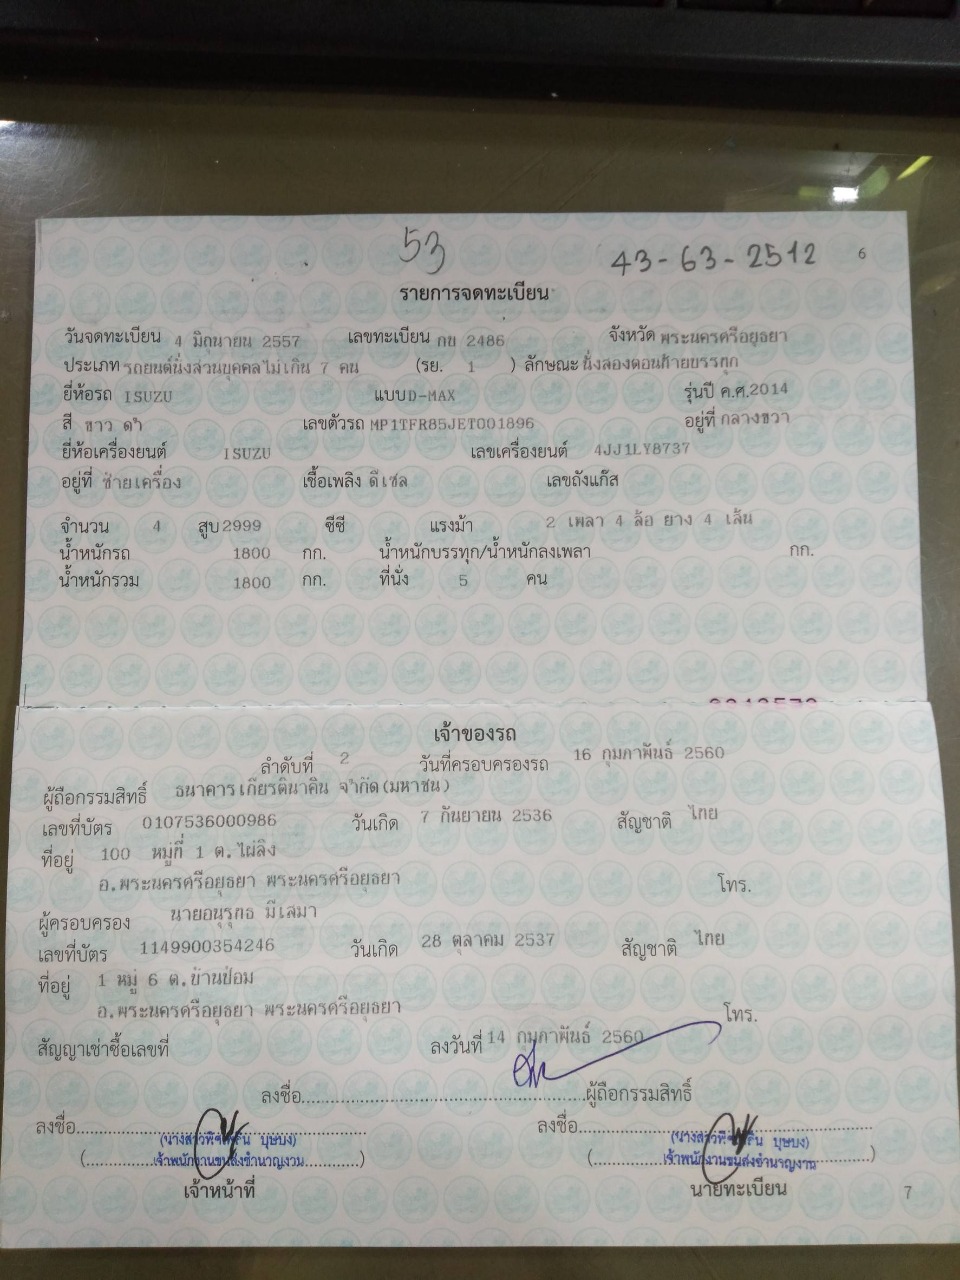 53
43-63-2512 6
รายการจดทะเบียน
วันจดทะเบียน 4 มิถุนายน 2557 เลขทะเบียน กข 2486 จังหวัด พระนครศรีอยุธยา
ประเภท รถยนต์นั่งส่วนบุคคลไม่เกิน 7 คน (รย. 1 ) ลักษณะ นั่งสองตอนท้ายบรรทุก
ยี่ห้อรถ ISUZU แบบ D-MAX รุ่นปี ค.ศ. 2014
สี ขาว ดำ เลขตัวรถ MP1TFR85JET001896 อยู่ที่ กลางขวา
ยี่ห้อเครื่องยนต์ ISUZU เลขเครื่องยนต์ 4JJ1LY8737
อยู่ที่ ซ้ายเครื่อง เชื้อเพลิง ดีเซล เลขถังแก๊ส
จำนวน 4 สูบ 2999 ซีซี แรงม้า 2 เพลา 4 ล้อ ยาง 4 เส้น
น้ำหนักรถ 1800 กก. น้ำหนักบรรทุก/น้ำหนักลงเพลา กก.
น้ำหนักรวม 1800 กก. ที่นั่ง 5 คน
เจ้าของรถ
ลำดับที่ 2 วันที่ครอบครองรถ 16 กุมภาพันธ์ 2560
ผู้ถือกรรมสิทธิ์ ธนาคารเกียรตินาคิน จำกัด(มหาชน)
เลขที่บัตร 0107536000986 วันเกิด 7 กันยายน 2536 สัญชาติ ไทย
ที่อยู่ 100 หมู่ที่ 1 ต.ไผ่ลิง
อ.พระนครศรีอยุธยา พระนครศรีอยุธยา โทร.
ผู้ครอบครอง นายอนุรุทธ มีเสมา
เลขที่บัตร 1149900354246 วันเกิด 28 ตุลาคม 2537 สัญชาติ ไทย
ที่อยู่ 1 หมู่ 6 ต.บ้านป้อม
อ.พระนครศรีอยุธยา พระนครศรีอยุธยา โทร.
สัญญาเช่าซื้อเลขที่ ลงวันที่ 14 กุมภาพันธ์ 2560
ลงชื่อ ผู้ถือกรรมสิทธิ์
ลงชื่อ ลงชื่อ
บุษบง) บุษบง)
เจ้าพนักงานขนส่งชำนาญงาน เจ้าพนักงานขนส่งชำนาญงาน
เจ้าหน้าที่ นายทะเบียน 7